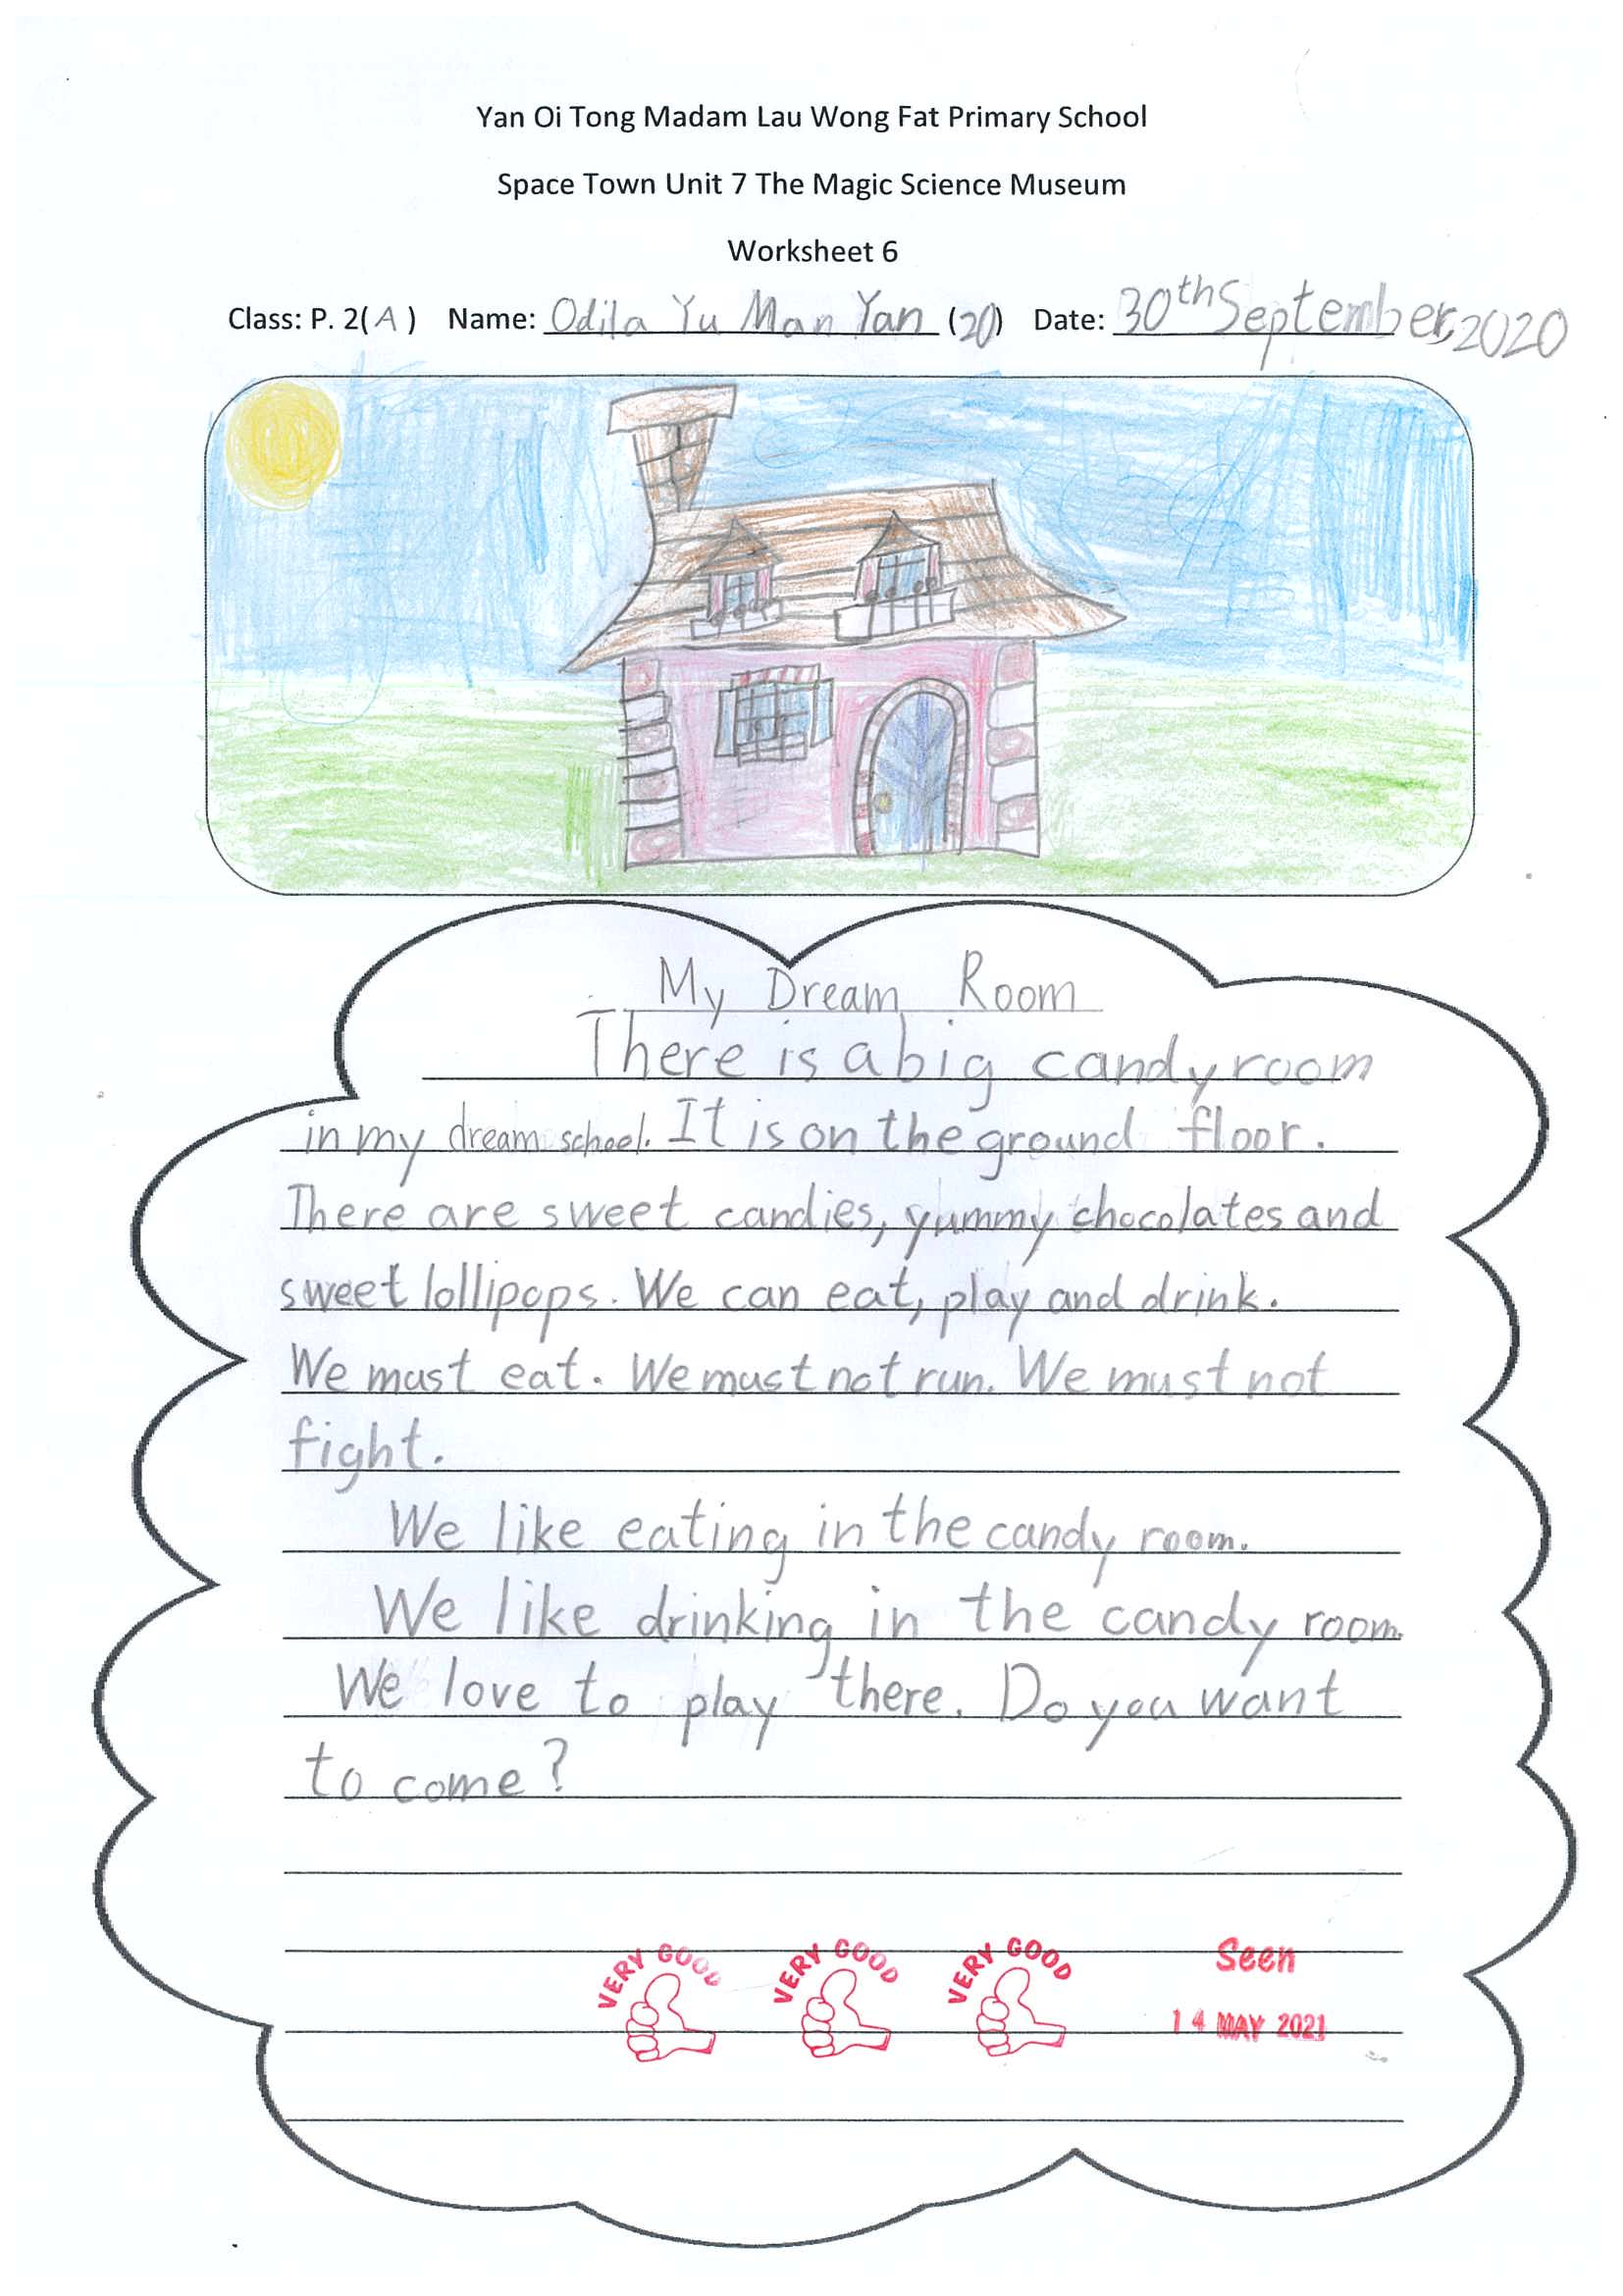 Yan Oi Tong Madam Lau Wong Fat Primary School
Space Town Unit 7 The Magic Science Museum
Worksheet 6
Class: P. 2(A) Name: Odila Yu Man Yan (20) Date: 30th September, 2020
My Dream Room
There is a big candy room
in my dream school. It is on the ground floor.
There are sweet candies, yummy chocolates and
sweet lollipops. We can eat, play and drink.
We must eat. We must not run. We must not
fight.
We like eating in the candy room.
We like drinking in the candy room.
We love to play there. Do you want
to come?
VERY GOOD VERY GOOD VERY GOOD Seen
14 MAY 2021